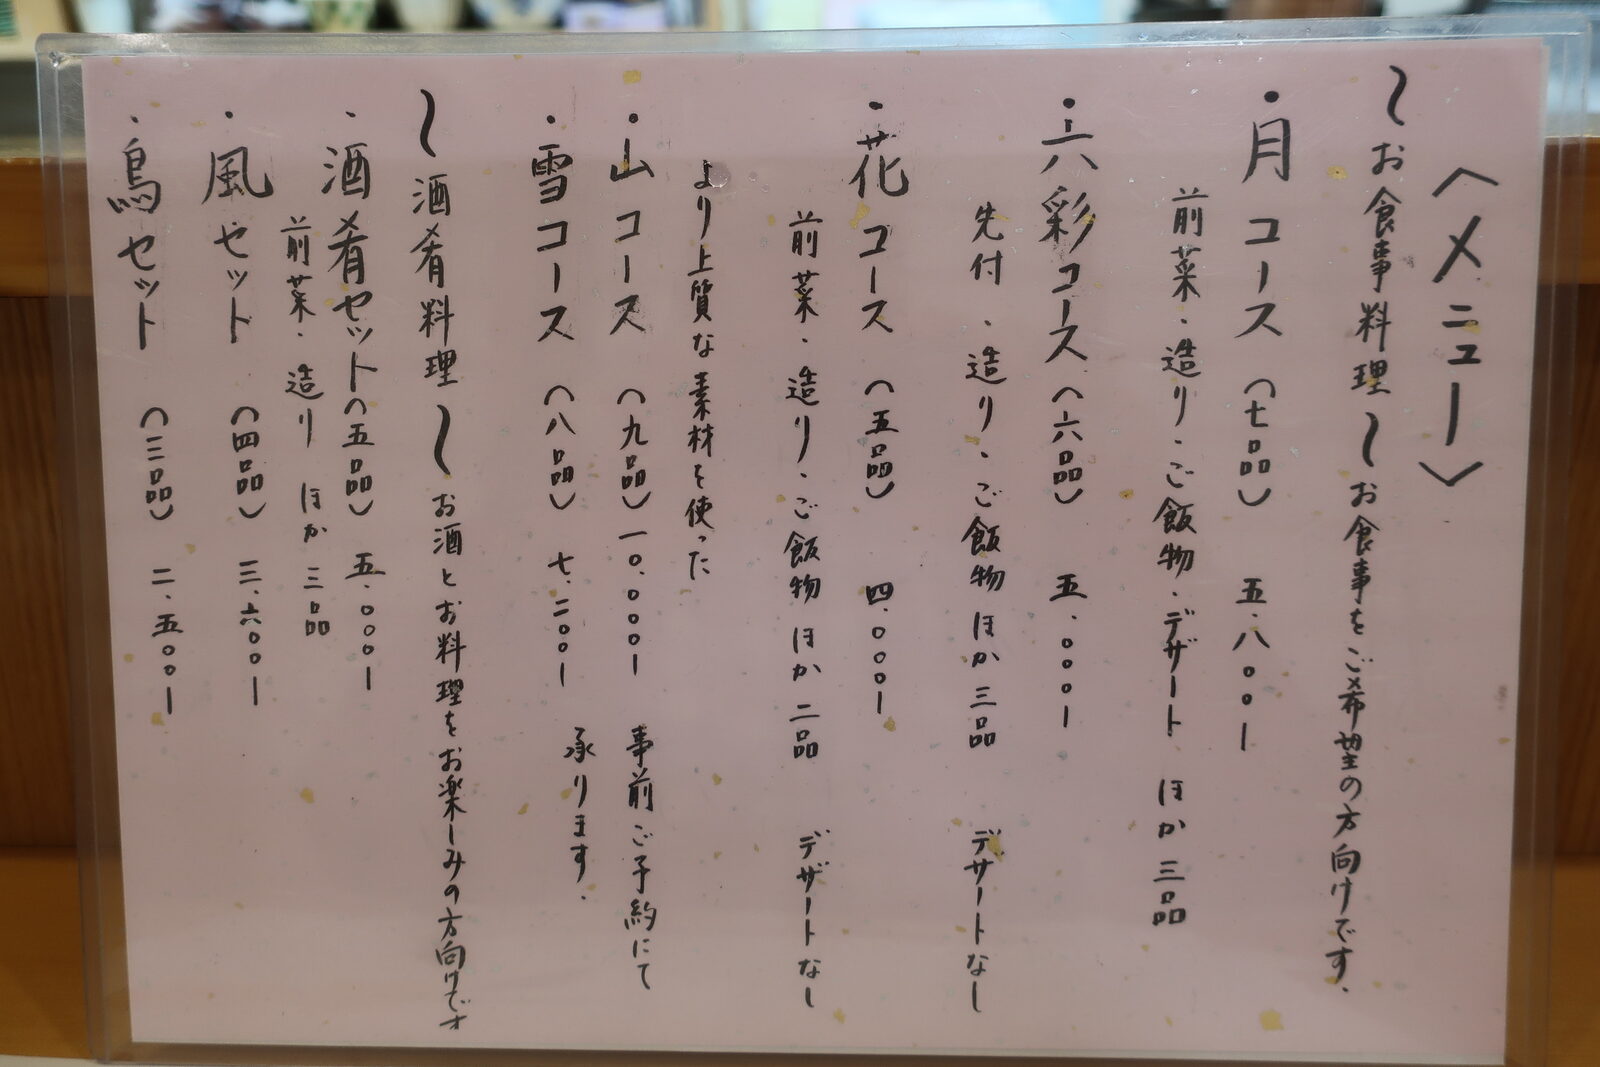 〈メニュー〉
〜お食事料理〜お食事をご希望の方向けです.
・月コース（七品） 五.八〇〇ー
前菜・造り・ご飯物・デザート ほか三品
・六彩コース（六品） 五.〇〇〇ー
先付・造り・ご飯物 ほか三品 デザートなし
・花コース（五品） 四.〇〇〇ー
前菜・造り・ご飯物 ほか二品 デザートなし
より上質な素材を使った
・山コース（九品）一〇.〇〇〇ー 事前ご予約にて
・雪コース（八品） 七.二〇〇ー 承ります.
〜酒肴料理〜 お酒とお料理をお楽しみの方向けです
・酒肴セット（五品） 五.〇〇〇ー
前菜・造り ほか三品
・風セット（四品） 三.六〇〇ー
・鳥セット（三品） 二.五〇〇ー